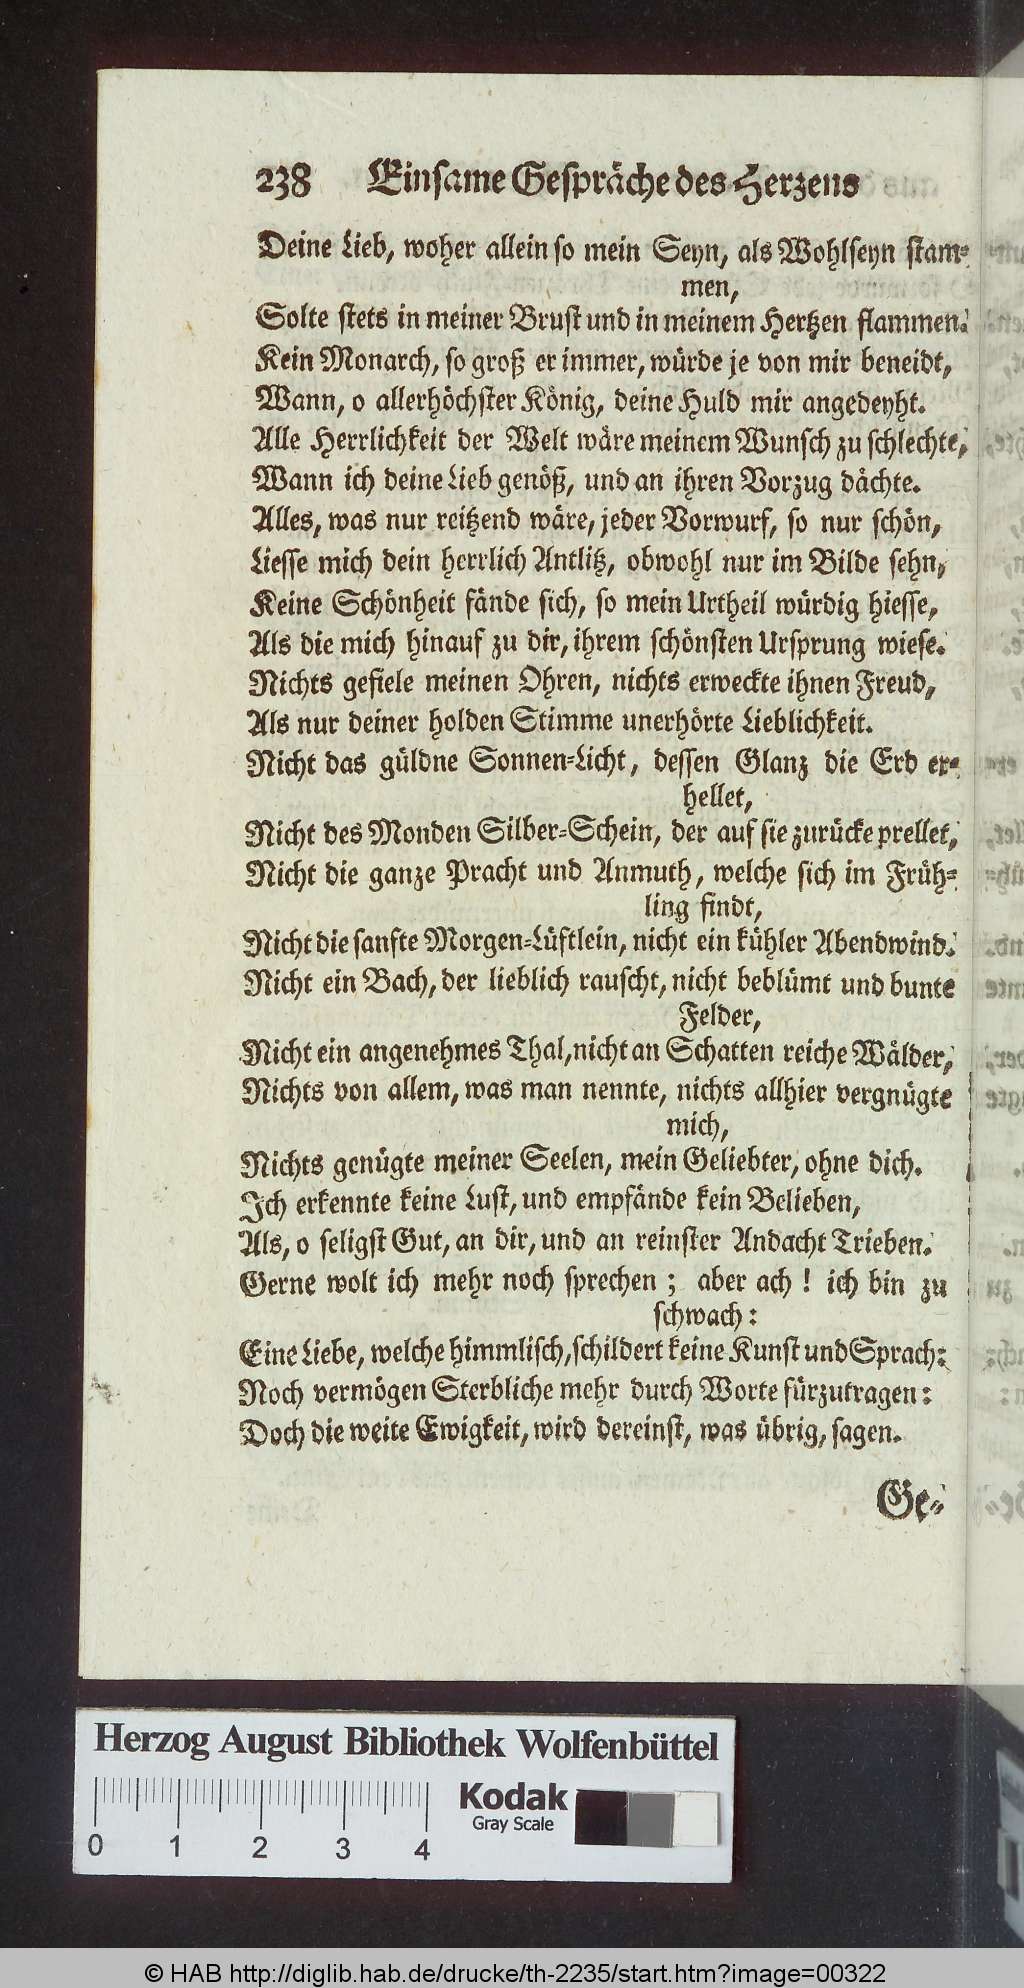 238 Einsame Gespräche des Herzens
Deine Lieb, woher allein so mein Seyn, als Wohlseyn stam=
men,
Solte stets in meiner Brust und in meinem Hertzen flammen.
Kein Monarch, so groß er immer, würde je von mir beneidt,
Wann, o allerhöchster König, deine Huld mir angedeyht.
Alle Herrlichkeit der Welt wäre meinem Wunsch zu schlechte,
Wann ich deine Lieb genöß, und an ihren Vorzug dächte.
Alles, was nur reitzend wäre, jeder Vorwurf, so nur schön,
Liesse mich dein herrlich Antlitz, obwohl nur im Bilde sehn,
Keine Schönheit fände sich, so mein Urtheil würdig hiesse,
Als die mich hinauf zu dir, ihrem schönsten Ursprung wiese.
Nichts gefiele meinen Ohren, nichts erweckte ihnen Freud,
Als nur deiner holden Stimme unerhörte Lieblichkeit.
Nicht das güldne Sonnen=Licht, dessen Glanz die Erd er=
hellet,
Nicht des Monden Silber=Schein, der auf sie zurücke prellet,
Nicht die ganze Pracht und Anmuth, welche sich im Früh=
ling findt,
Nicht die sanfte Morgen=Lüftlein, nicht ein kühler Abendwind.
Nicht ein Bach, der lieblich rauscht, nicht beblümt und bunte
Felder,
Nicht ein angenehmes Thal, nicht an Schatten reiche Wälder,
Nichts von allem, was man nennte, nichts allhier vergnügte
mich,
Nichts genügte meiner Seelen, mein Geliebter, ohne dich.
Ich erkennte keine Lust, und empfände kein Belieben,
Als, o seligst Gut, an dir, und an reinster Andacht Trieben.
Gerne wolt ich mehr noch sprechen; aber ach! ich bin zu
schwach:
Eine Liebe, welche himmlisch, schildert keine Kunst und Sprach:
Noch vermögen Sterbliche mehr durch Worte fürzutragen:
Doch die weite Ewigkeit, wird dereinst, was übrig, sagen.
Ge=
Herzog August Bibliothek Wolfenbüttel
Kodak
Gray Scale
0 1 2 3 4
© HAB http://diglib.hab.de/drucke/th-2235/start.htm?image=00322